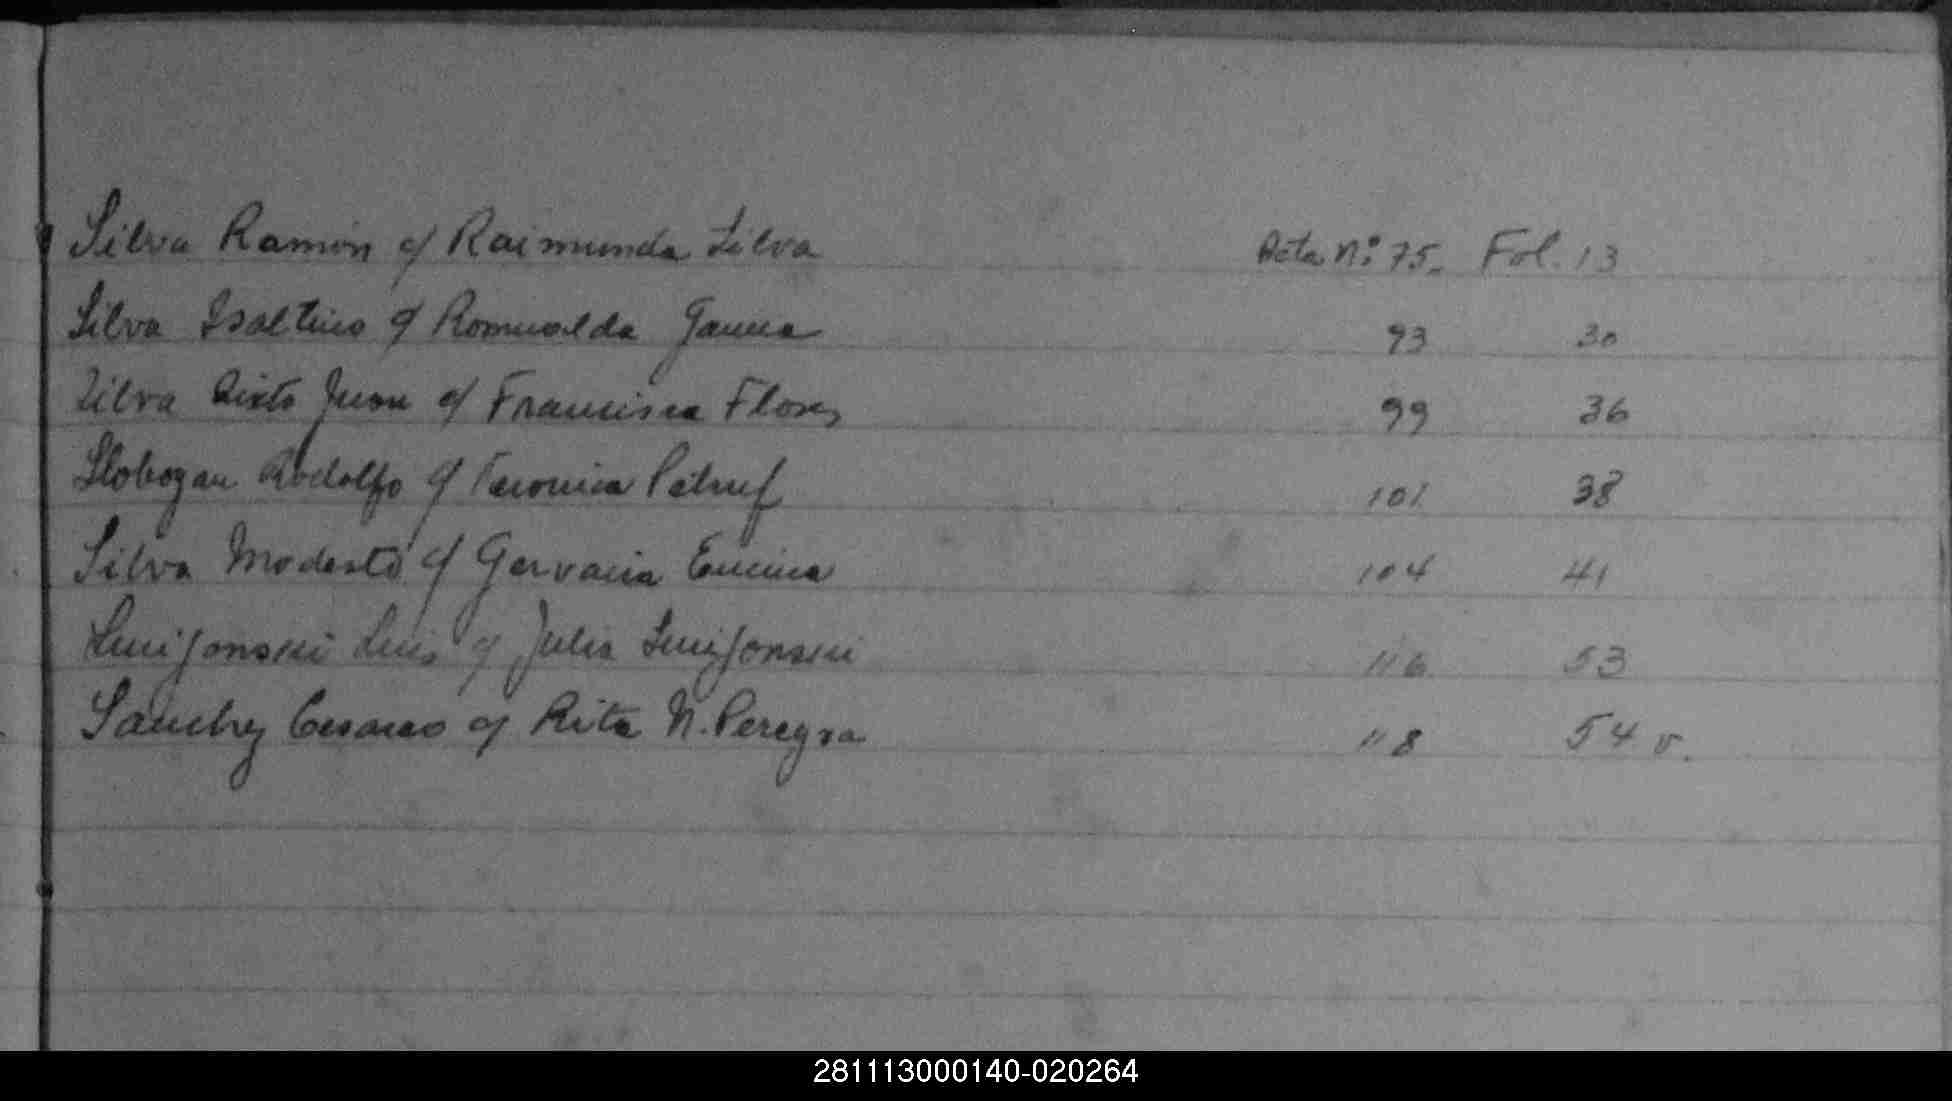 Silva Ramón c/ Raimunda Silva Acta Nº 75. Fol. 13
Silva Isaltino c/ Romualda Gauna 93 30
Silva Sixto Juan c/ Francisca Flores 99 36
Slobozan Rodolfo c/ Veronica Petruf 101 38
Silva Modesto c/ Gervacia Encina 104 41
Luis c/ Julia 116 53
Sanchez Cesareo c/ Rita N. Pereyra 118 54 v.
281113000140-020264